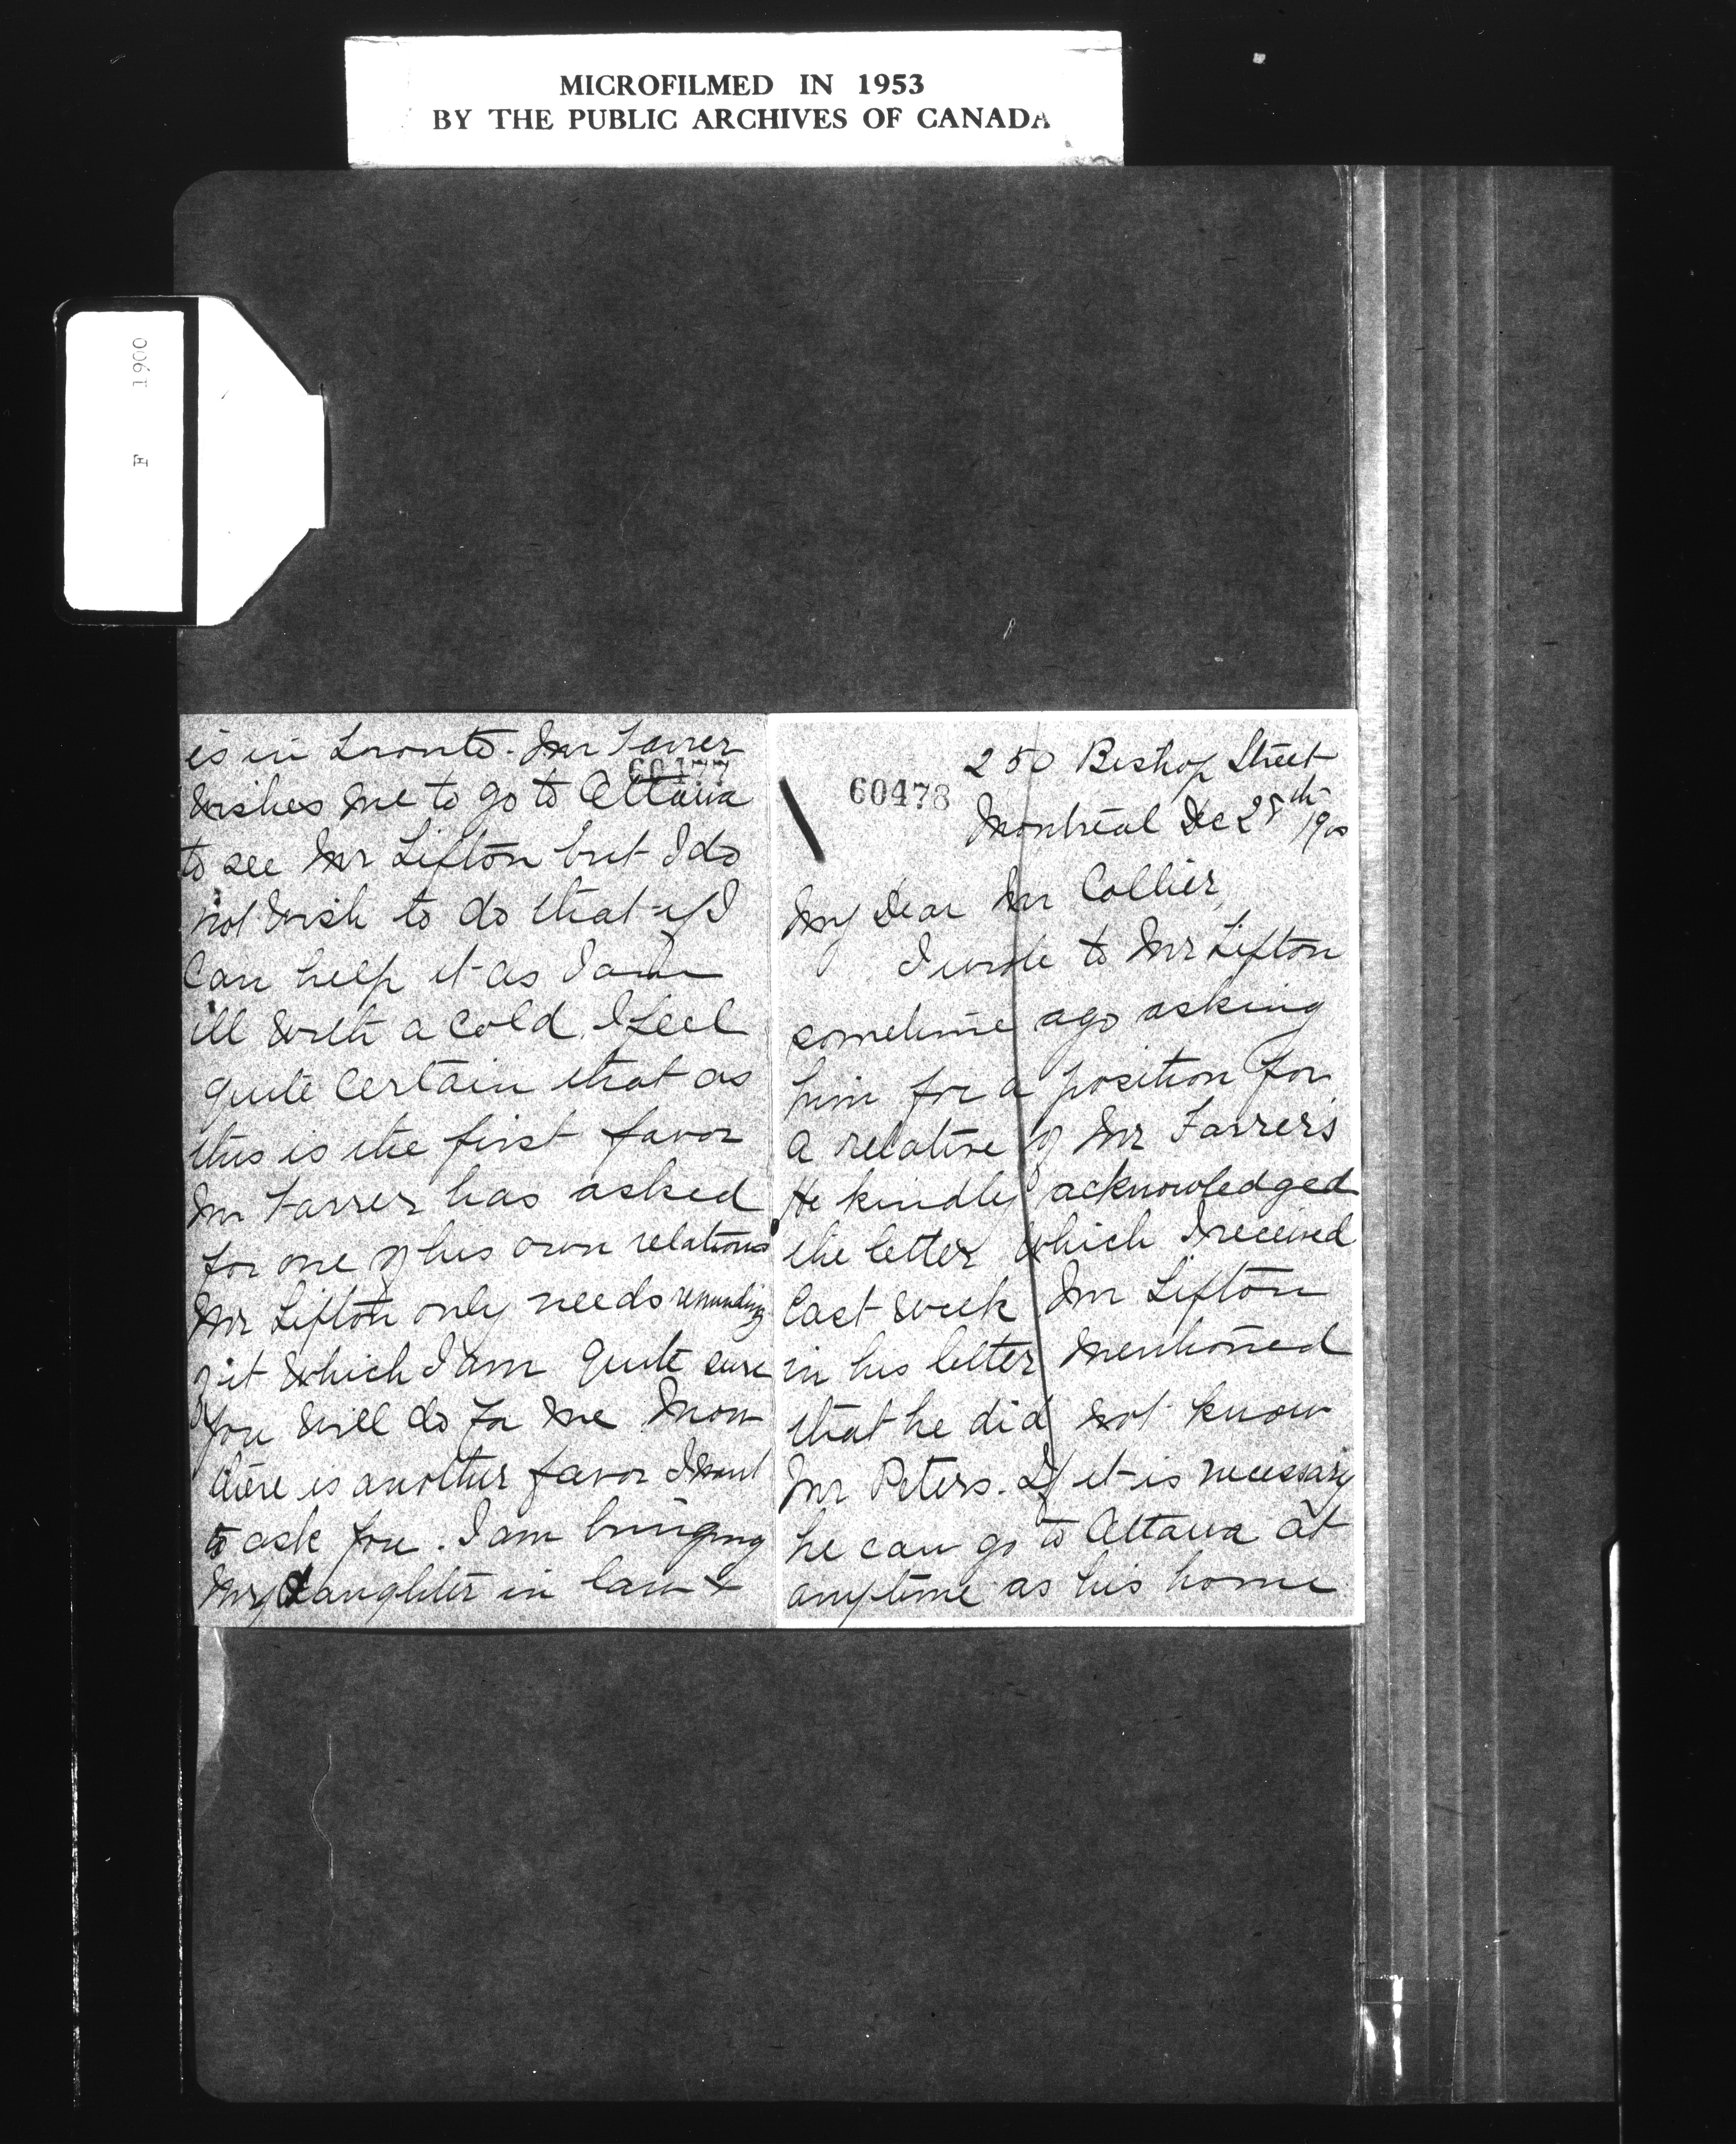 MICROFILMED IN 1953
BY THE PUBLIC ARCHIVES OF CANADA
F 1900
60478
250 Bishop Street
Montreal Dec 28th 1900
My Dear Mr Collier,
I wrote to Mr Sifton
sometime ago asking
him for a position for
a relative of Mr Farrer's
He kindly acknowledged
the letter which I received
last week Mr Sifton
in his letter mentioned
that he did not know
Mr Peters. If it is necessary
he can go to Ottawa at
anytime as his home
60477
is in Toronto. Mr Farrer
wishes me to go to Ottawa
to see Mr Sifton but I do
not wish to do that if I
can help it as I am
ill with a cold. I feel
quite certain that as
this is the first favor
Mr Farrer has asked
for one of his own relations
Mr Sifton only needs reminding
of it which I am quite sure
you will do for me Now
there is another favor I want
to ask you. I am bringing
my daughter in law &